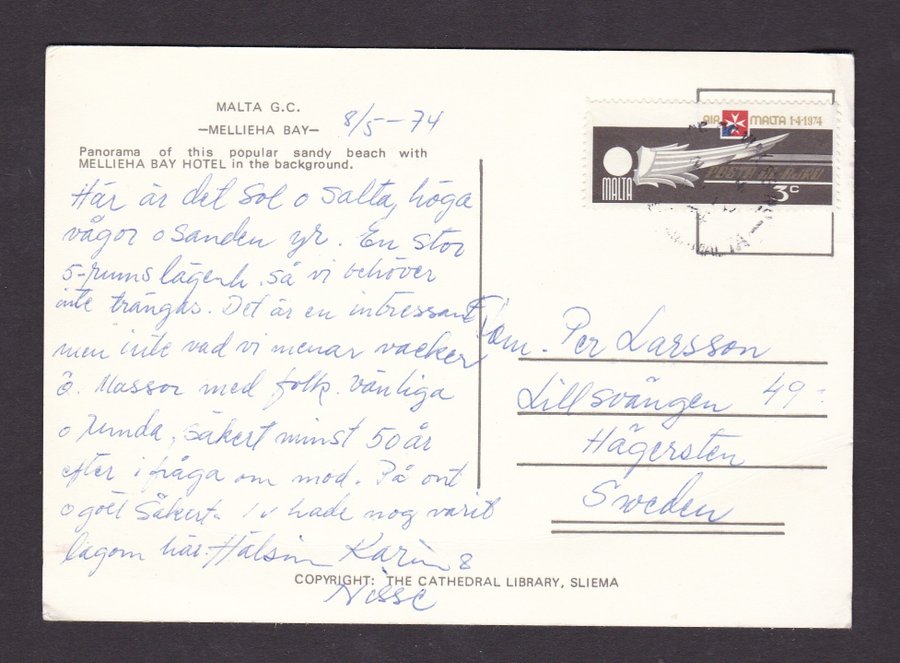 MALTA G.C.
—MELLIEHA BAY—
8/5-74
Panorama of this popular sandy beach with
MELLIEHA BAY HOTEL in the background.
Här är det sol o salta, höga
vågor o sanden yr. En stor
5-rums lägenh. så vi behöver
inte trängas. Det är en intressant
men inte vad vi menar vacker
ö. Massor med folk. vänliga
o runda, säkert minst 50 år
efter i fråga om mod. På ont
o gott säkert. hade nog varit
lagom här. Hälsn Karin &
Nisse
AIR MALTA 1·4·1974
POSTA BL-AJRU
MALTA
3c
Fam. Per Larsson
Lillsvängen 49
Hägersten
Sweden
COPYRIGHT: THE CATHEDRAL LIBRARY, SLIEMA